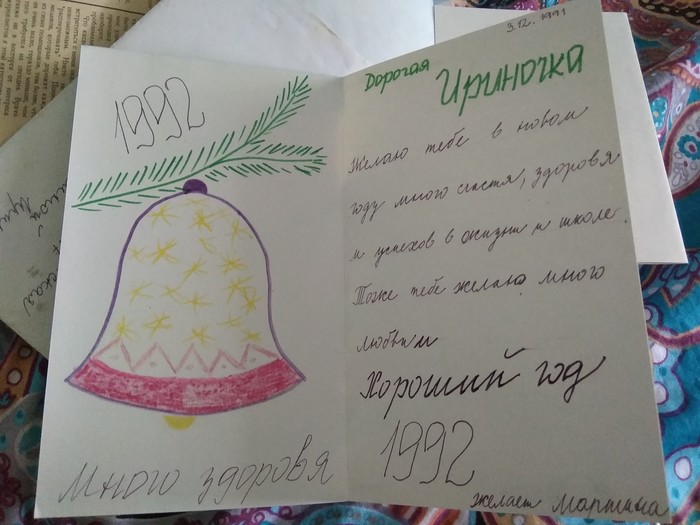 1992
Много здоровя
3.12.1991
Дорогая Ириночка
Желаю тебе в новом
году много счастя, здоровя
и успехов в жизни и школе.
Тоже тебе желаю много
любьви
Хороший год
1992
желает Мартина